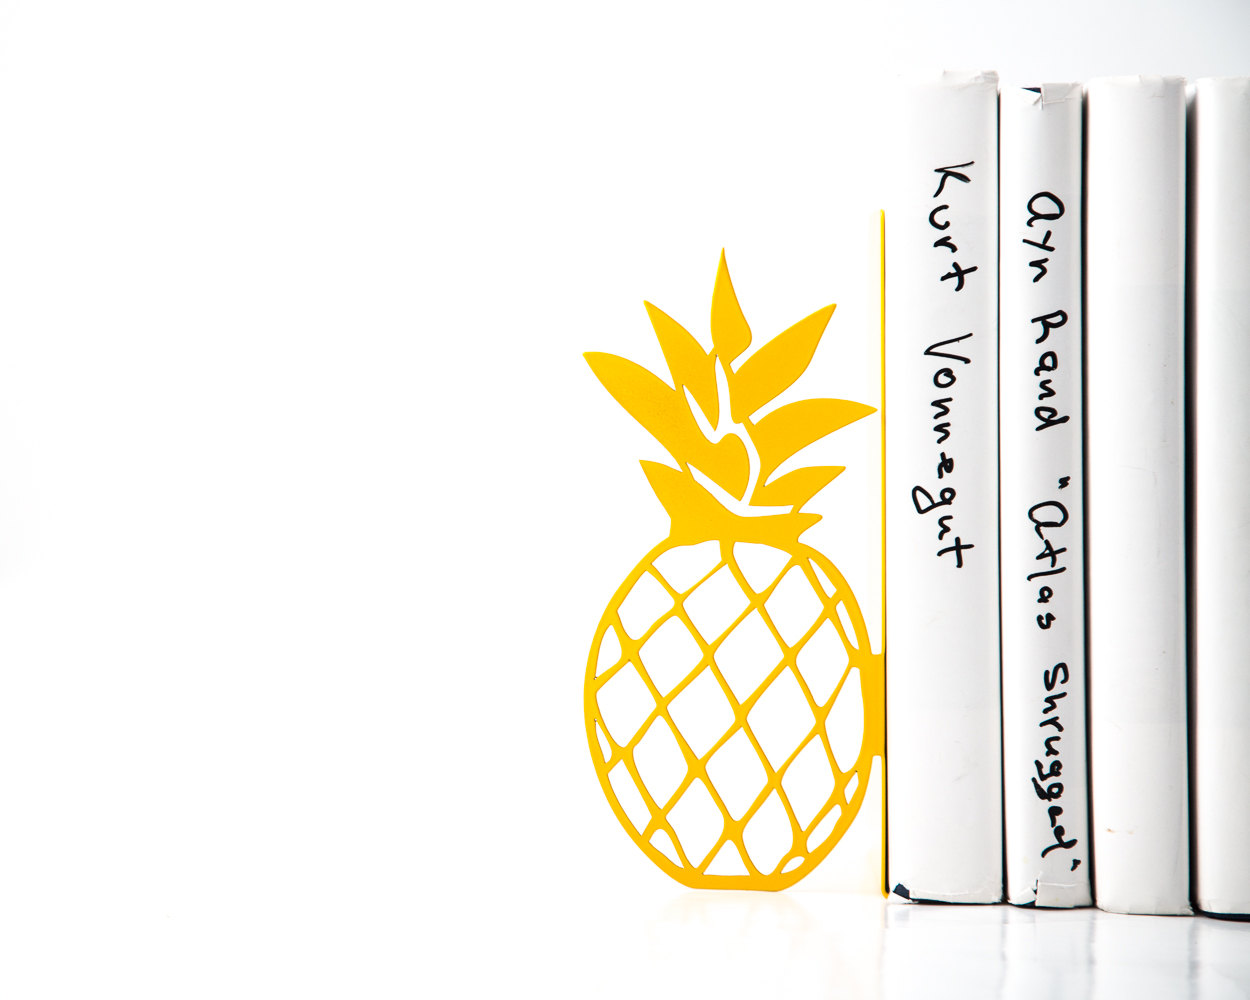 Kurt Vonnegut
Ayn Rand "Atlas Shrugged"